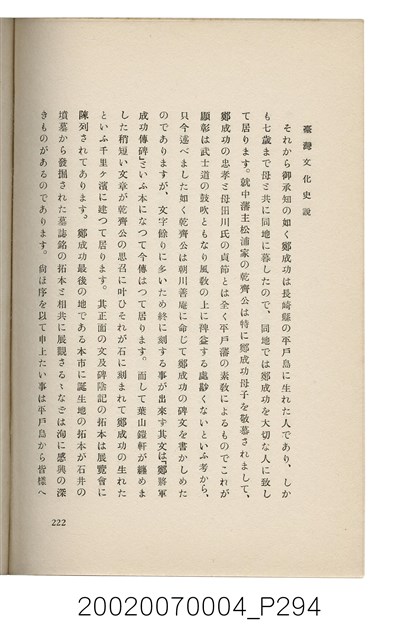 臺灣文化史說
それから御承知の如く鄭成功は長崎縣の平戸島に生れた人であり、しか
も七歲まで母ミ共に同地に暮したので、同地では鄭成功を大切な人に致し
て居ります。就中藩主松浦家の乾齊公は特に鄭成功母子を敬慕されまして、
鄭成功の忠孝ミ母田川氏の貞節とは全く平戸藩の素敎によるものでこれが
顯彰は武士道の鼓吹ともなり風敎の上に裨益する處尠くないといふ考から、
只今述べました如く乾齊公は朝川善庵に命じて鄭成功の碑文を書かしめた
のでありますが、文字餘りに多いため終に刻する事が出來す其文は『鄭將軍
成功傳碑』といふ本になつて今傳はつて居ります。而して葉山鎧軒が纏めま
した稍短い文章が乾齊公の思召に叶ひそれが石に刻まれて鄭成功の生れた
といふ千里ケ濱に建つて居ります。其正面の文及碑陰記の拓本は展覽會に
陳列されてあります。鄭成功最後の地である本市に誕生地の拓本が石井の
墳墓から發掘された墓誌銘の拓本ミ相共に展觀さるゝなミは洵に感興の深
きものがあるのであります。尙ほ序を以て申上たい事は平戸島から皆樣へ
222
20020070004_P294